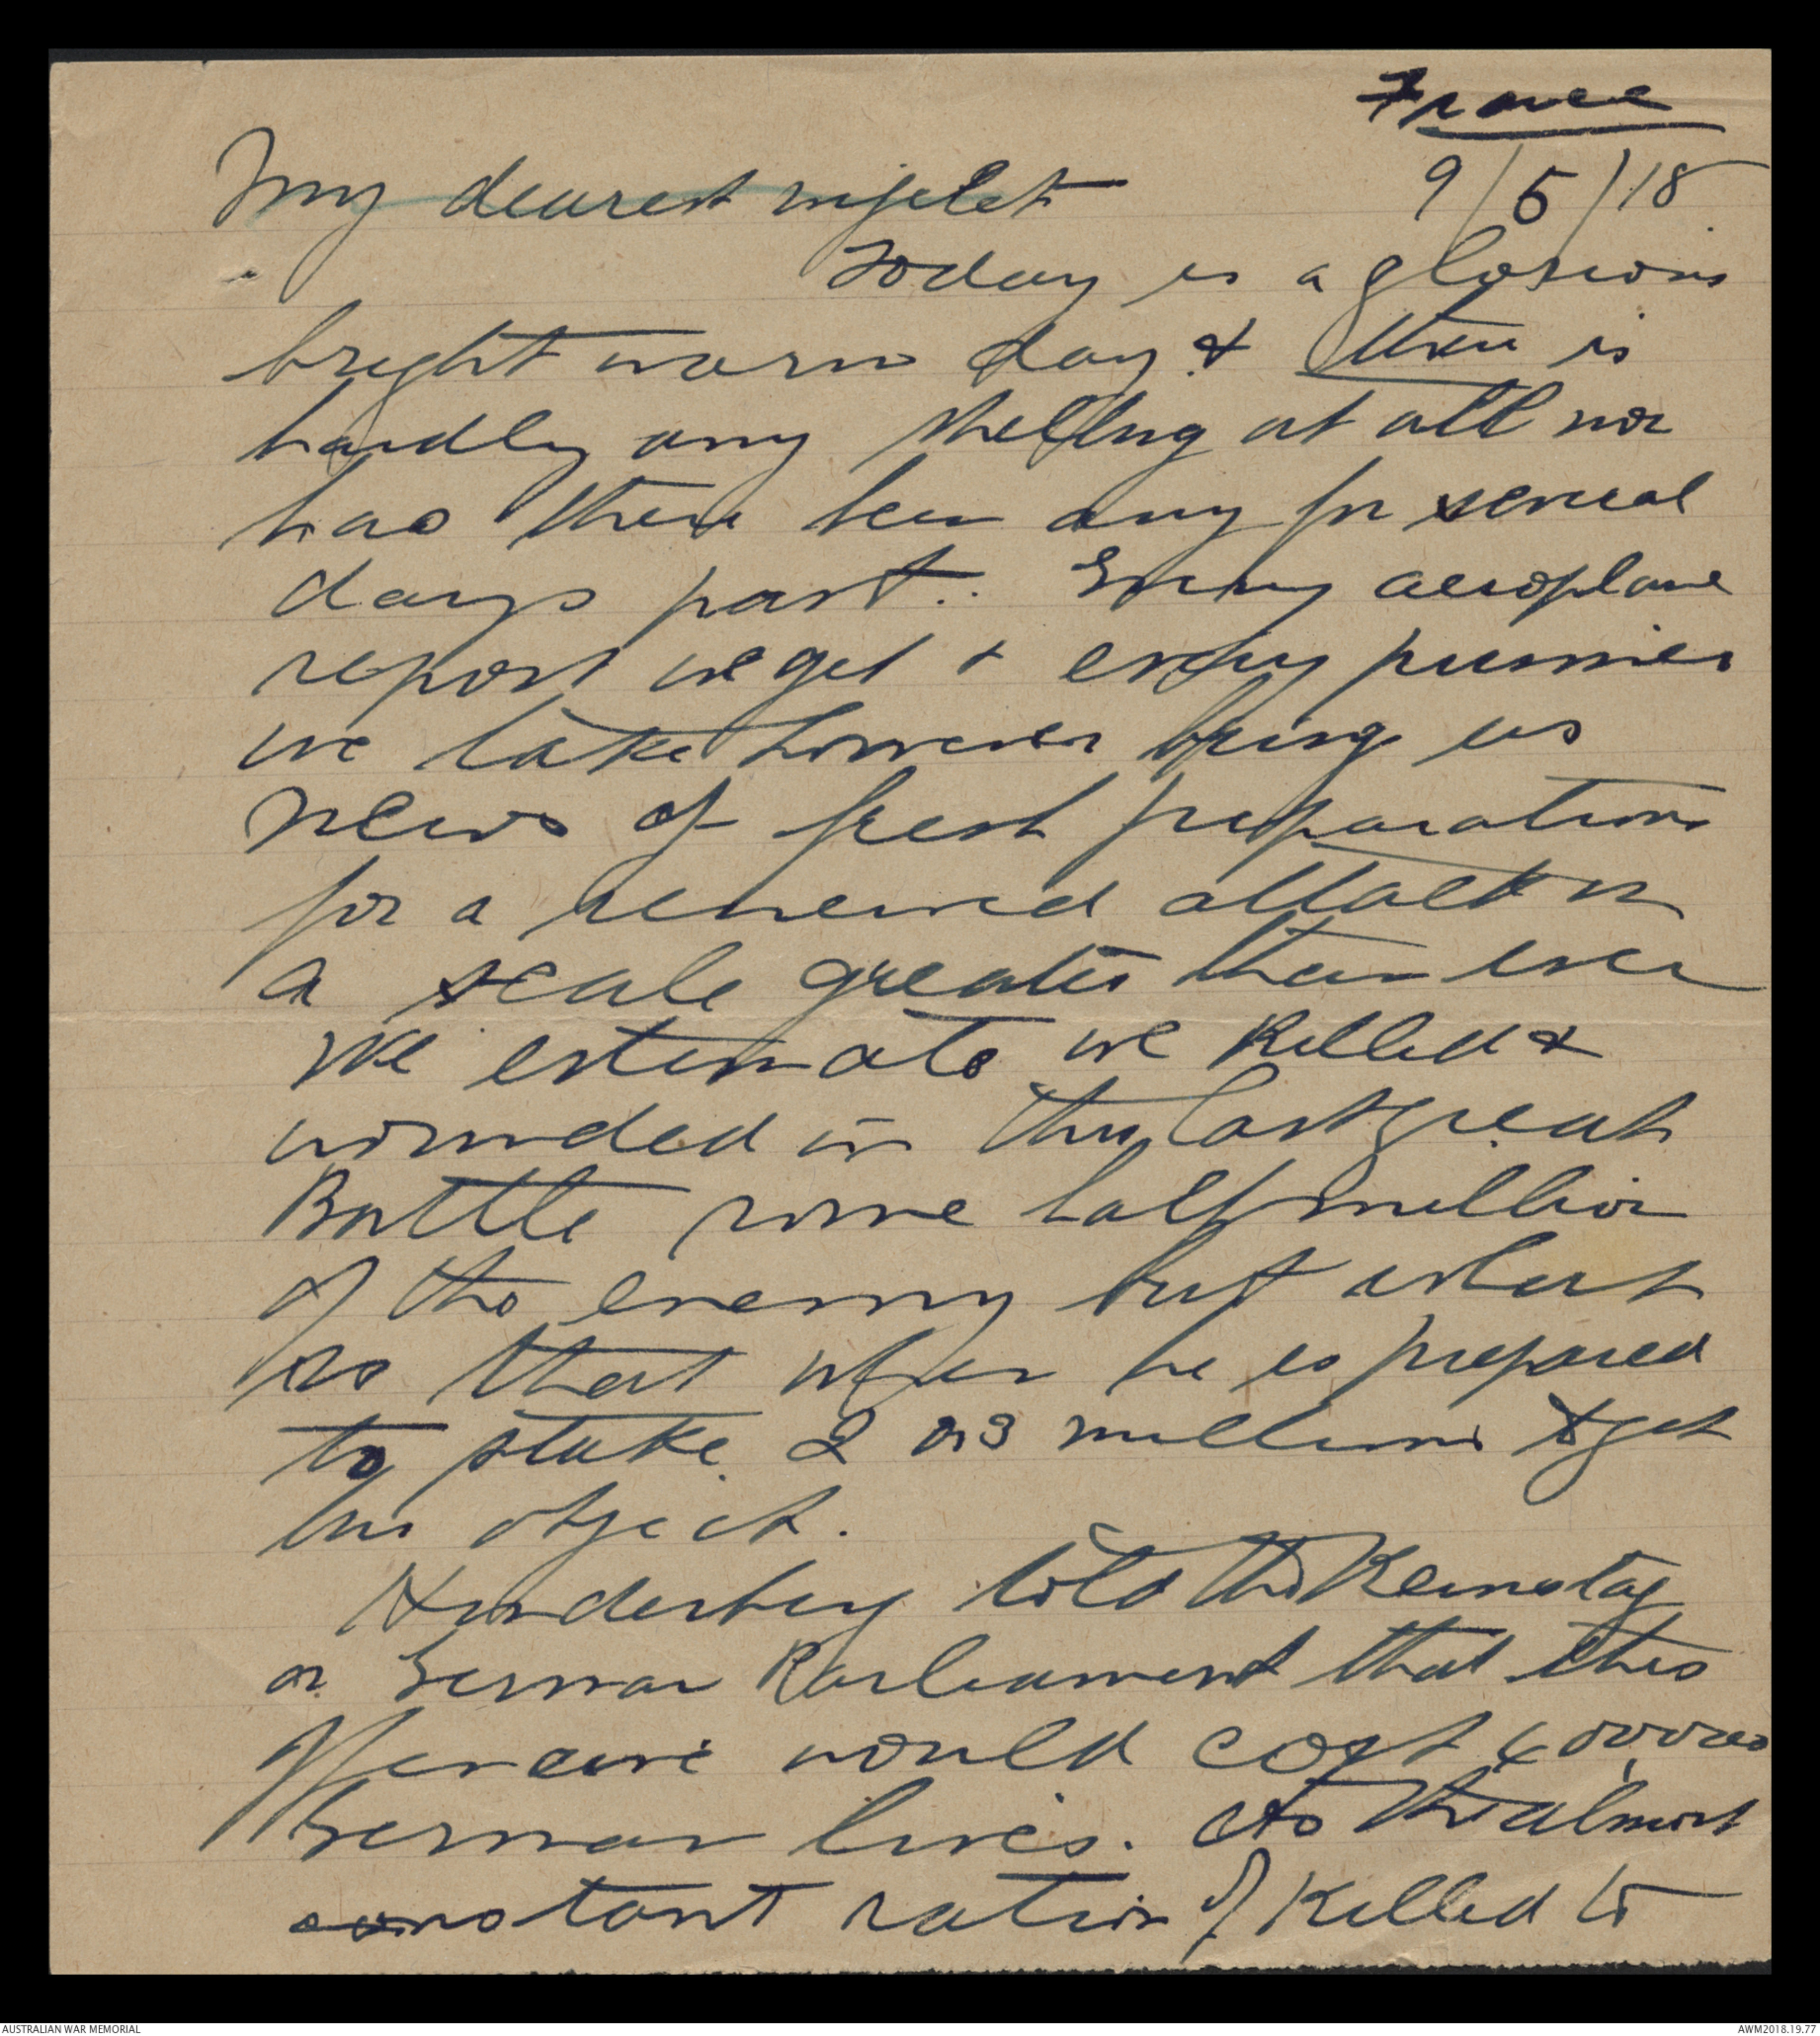 France
9/5/18
My dearest wifelet
Today is a glorious
bright warm day & there is
hardly any shelling at all nor
has there been any for several
days past. Every aeroplane
report we get & every prisoner
we take however bring us
news of fresh preparations
for a renewed attack on
a scale greater than ever
We estimate we killed &
wounded in this last great
Battle some half million
of the enemy but what
is that when he is prepared
to stake 2 or 3 millions to get
his object.
Hindenburg told the Reichstag
or German Parliament that this
Offensive would cost
German lives. As the almost
constant ratio of killed to
AUSTRALIAN WAR MEMORIAL
AWM2018.19.77